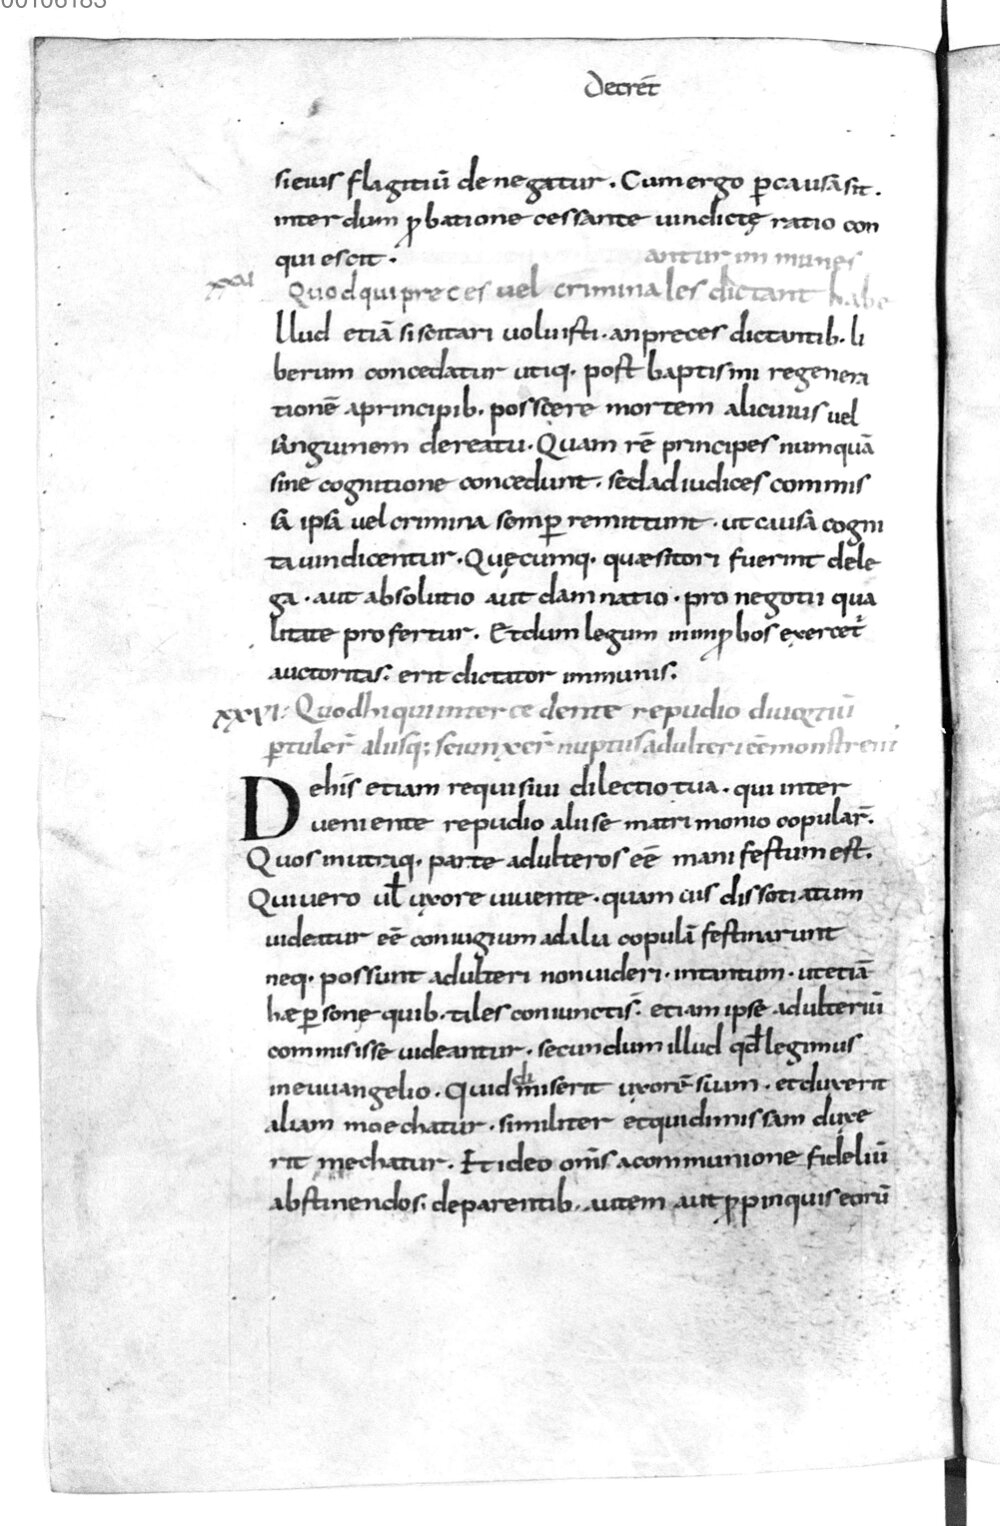 Decret̄
si eius flagitiū denegatur. Cum ergo ꝑ causā sit.
interdum ꝓbatione cessante uindictę ratio con
quiescit.
antur inmunes
XXV Quod qui preces uel criminales dictant habe
llud etiā siscitari uoluisti. an preces dictantib. li
berum concedatur utiq. post baptismi regenera
tionē a principib. poscere mortem alicuius uel
sanguinem de reatu. Quam rē principes numquā
sine cognitione concedunt. sed ad iudices commis
sa ipsa uel crimina semꝑ remittunt. ut causa cogni
ta uindicentur. Quęcumq. quæsitori fuerint dele
ga. aut absolutio aut damnatio. pro negotii qua
litate profertur. Et dum legum in inꝓbos exercet̄
auctoritas. erit dictator inmunis.
XXVI: Quod hi qui intercedente repudio diuortiū
ꝑtuler̄ aliisq; se iunxer̄ nuptiis adulteri eē monstrent
De his etiam requisiui dilectio tua. qui inter
ueniente repudio alii se matrimonio copular̄.
Quos in utraq. parte adulteros eē manifestum est.
Qui uero ul̄ uxore uiuente. quamuis dissotiatum
uideatur eē coniugium ad alia copulā festinarunt
neq. possunt adulteri non uideri. in tantum. ut etiā
hæ ꝑsonę quib. tales coniunctis. etiam ipse adulteriū
commisisse uideantur. secundum illud qd̄ legimus
in euuangelio. Qui dimiserit uxorē suam. et duxerit
aliam moechatur. similiter et qui dimissam duxe
rit mechatur. Et ideo om̄s a communione fideliū
abstinendos. de parentib. autem aut ꝓpinquis eorū